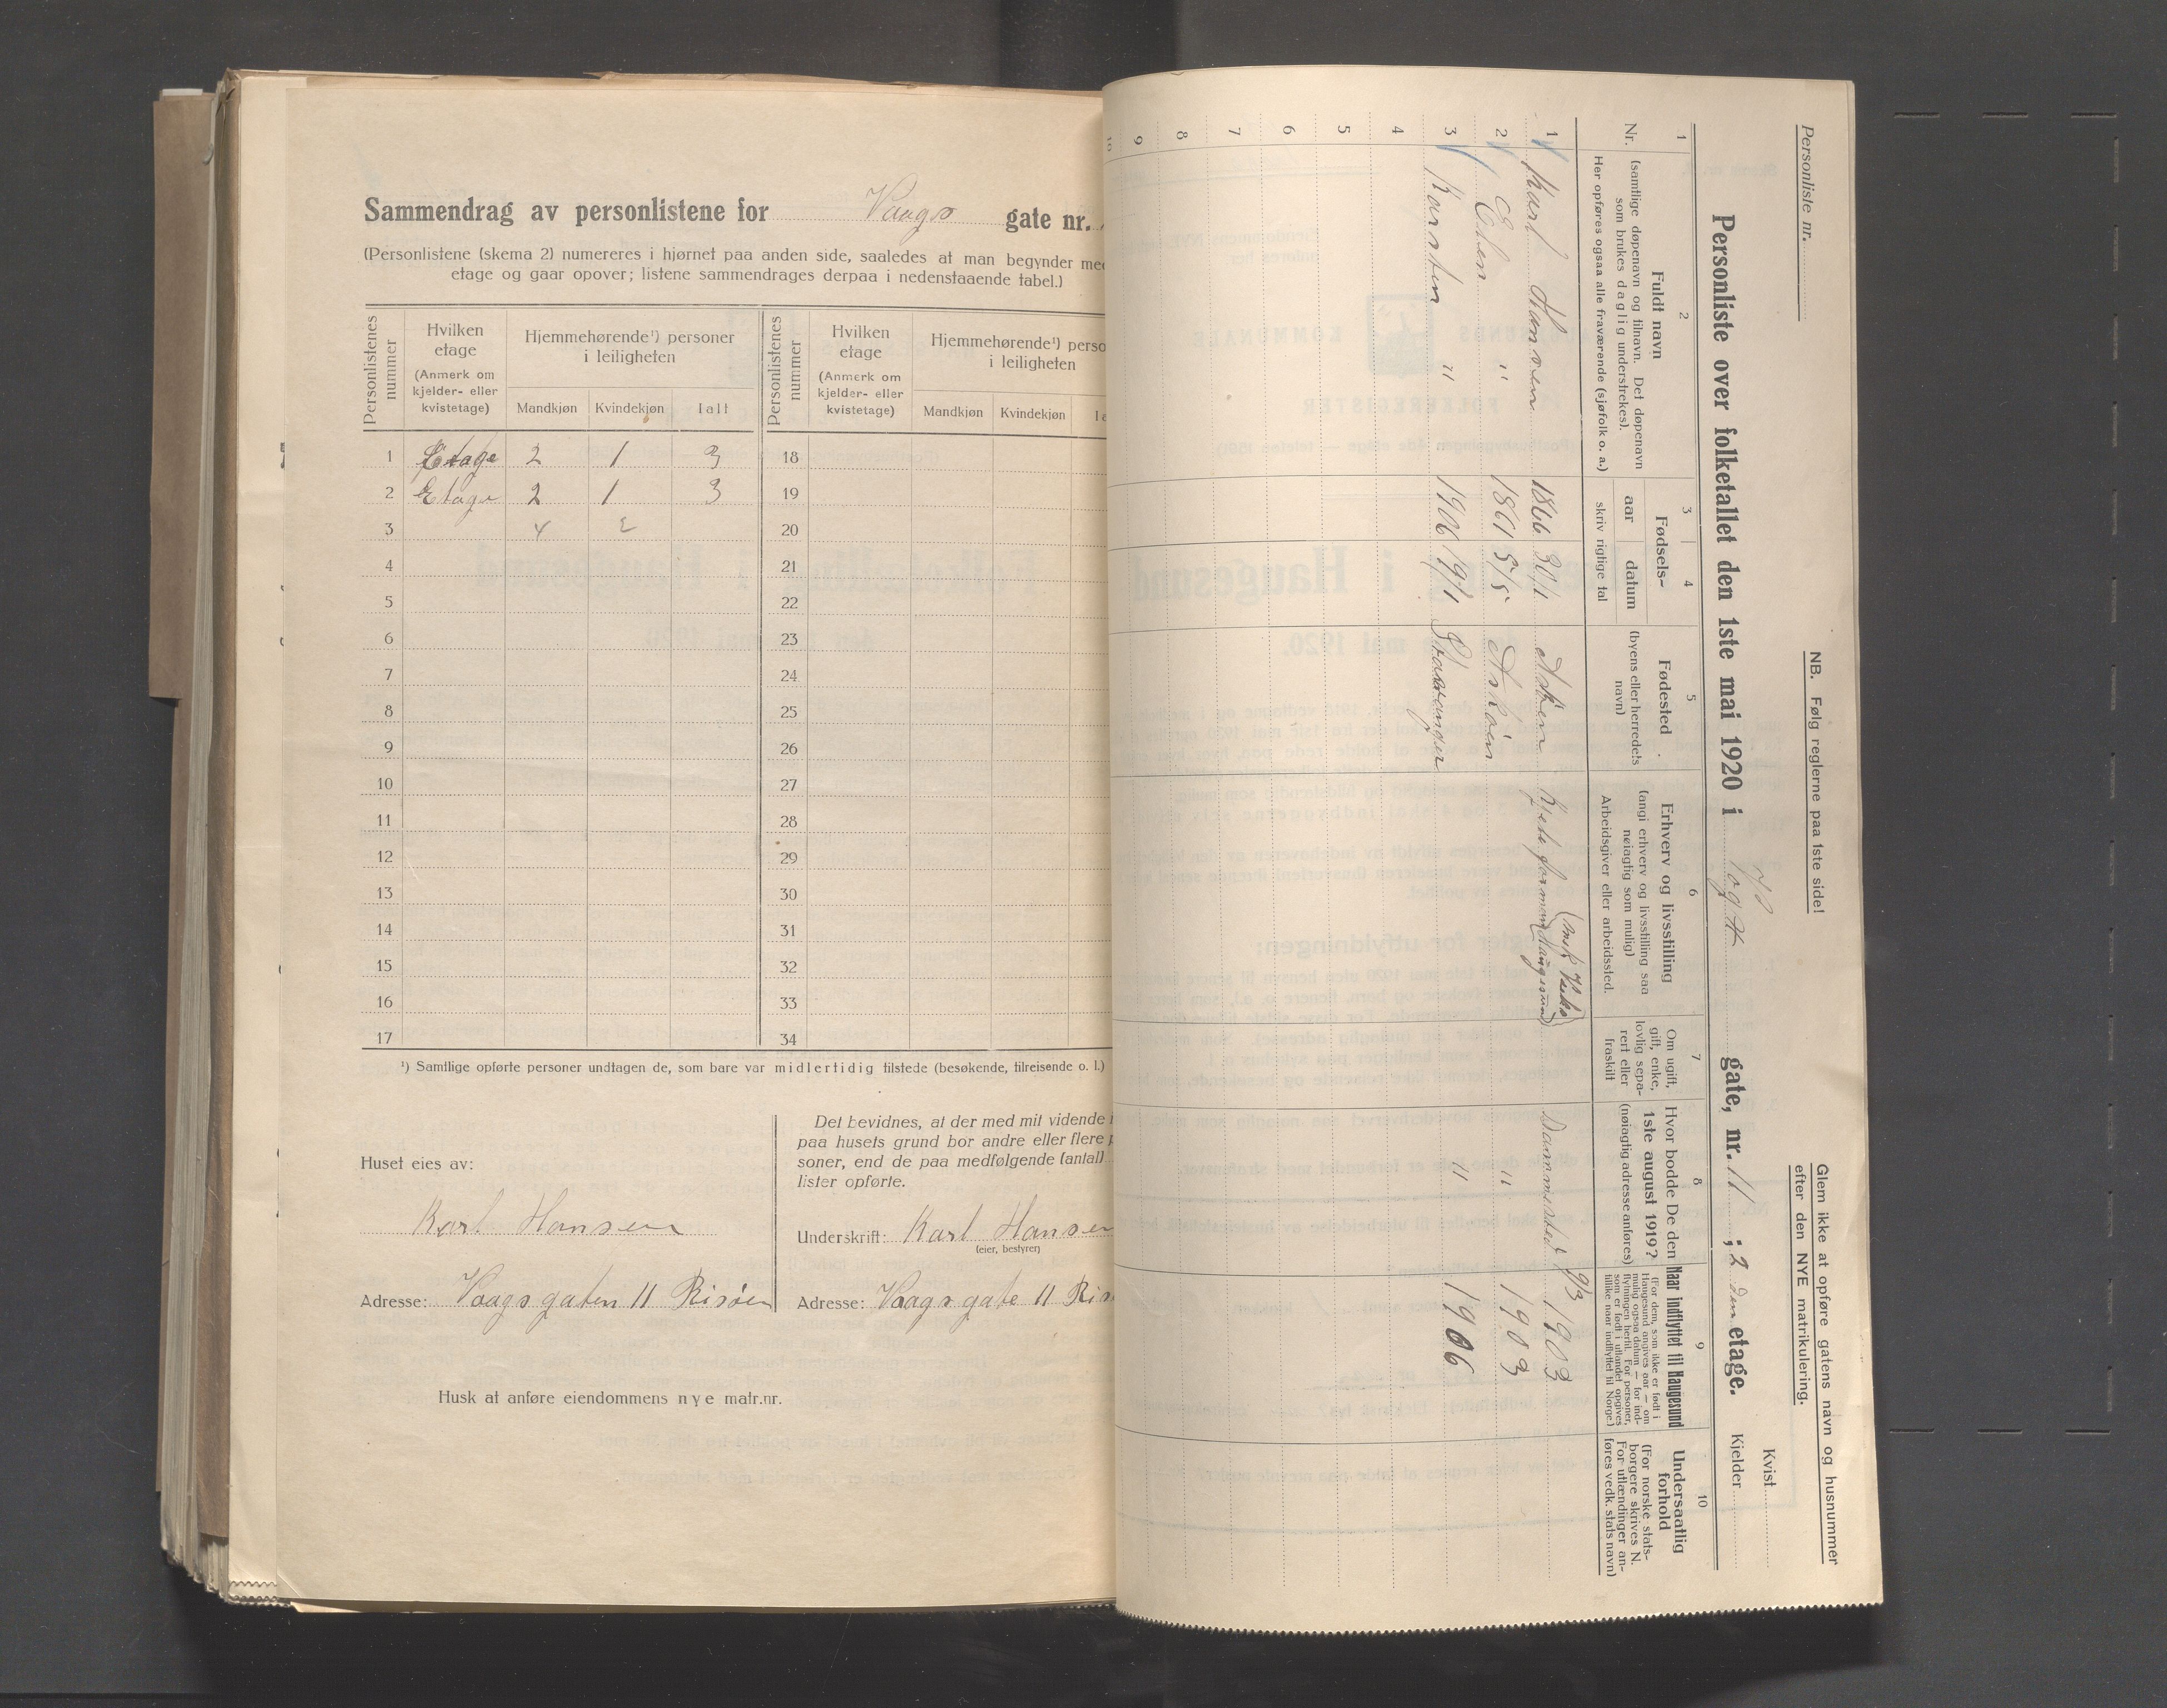 Sammendrag av personlistene for Vaags gate nr.
(Personlistene (skema 2) numereres i hjørnet paa anden side, saaledes at man begynder med
etage og gaar opover; listene sammendrages derpaa i nedenstaaende tabel.)
Personlistenes nummer
Hvilken etage (Anmerk om kjelder- eller kvistetage)
Hjemmehørende¹) personer i leiligheten
Mandkjøn Kvindekjøn Ialt
Personlistenes nummer
Hvilken etage (Anmerk om kjelder- eller kvistetage)
Hjemmehørende¹) perso
i leiligheten
Mandkjøn Kvindekjøn
1 Etage 2 1 3 18
2 Etage 2 1 3 19
3 4 2 20
4 21
5 22
6 23
7 24
8 25
9 26
10 27
11 28
12 29
13 30
14 31
15 32
16 33
17 34
¹) Samtlige opførte personer undtagen de, som bare var midlertidig tilstede (besøkende, tilreisende o. l.)
Huset eies av:
Karl Hansen
Adresse: Vaagsgaten 11 Risøen
Det bevidnes, at der med mit vidende
paa husets grund bor andre eller flere
soner, end de paa medfølgende (antal)
lister opførte.
Underskrift: Karl Hansen
(eier, bestyrer)
Adresse: Vaagsgate 11 Ris
Husk at anføre eiendommens nye matr.nr.
Personliste nr.
NB. Følg reglerne paa 1ste side!
Glem ikke at opføre gatens navn og husnummer
efter den NYE matrikulering.
Personliste over folketallet den 1ste mai 1920 i gate, nr. 11 ; 2 den etage.
Kvist
Kjelder
1 2 3 4 5 6 7 8 9 10
Nr.
Fuldt navn
(samtlige døpenavn og tilnavn. Det døpenavn
som brukes daglig understrekes).
Her opføres ogsaa alle fraværende (sjøfolk o. a.)
Fødsels-
aar datum
skriv rigtige tal
Fødested
(byens eller herredets
navn)
Erhverv og livsstilling
(angi erhverv og livsstilling saa
nøiagtig som mulig)
Arbeidsgiver eller arbeidssted.
Om ugift,
gift, enke,
lovlig sepa-
rert eller
fraskilt
Hvor bodde De den
1ste august 1919?
(nøiagtig adresse anføres)
Naar indflyttet til Haugesund
(For dem, som ikke er født i
Haugesund angives aar — om
mulig ogsaa datum — for ind-
flytningen hertil. For personer,
som er født i utlandet opgives
tillike naar indflyttet til Norge.)
Undersaatlig
forhold
(For norske stats-
borgere skrives N.
For utlændinger an-
føres vedk. stats navn)
1 Karl Hansen 1866 30/1 Asköen Haugesund Sammested 9/3 1903
2 Elen " 1861 5/5 Asköen " 1903
3 Karsten " 1906 19/1 Stavanger " 1906
4
5
6
7
8
9
10